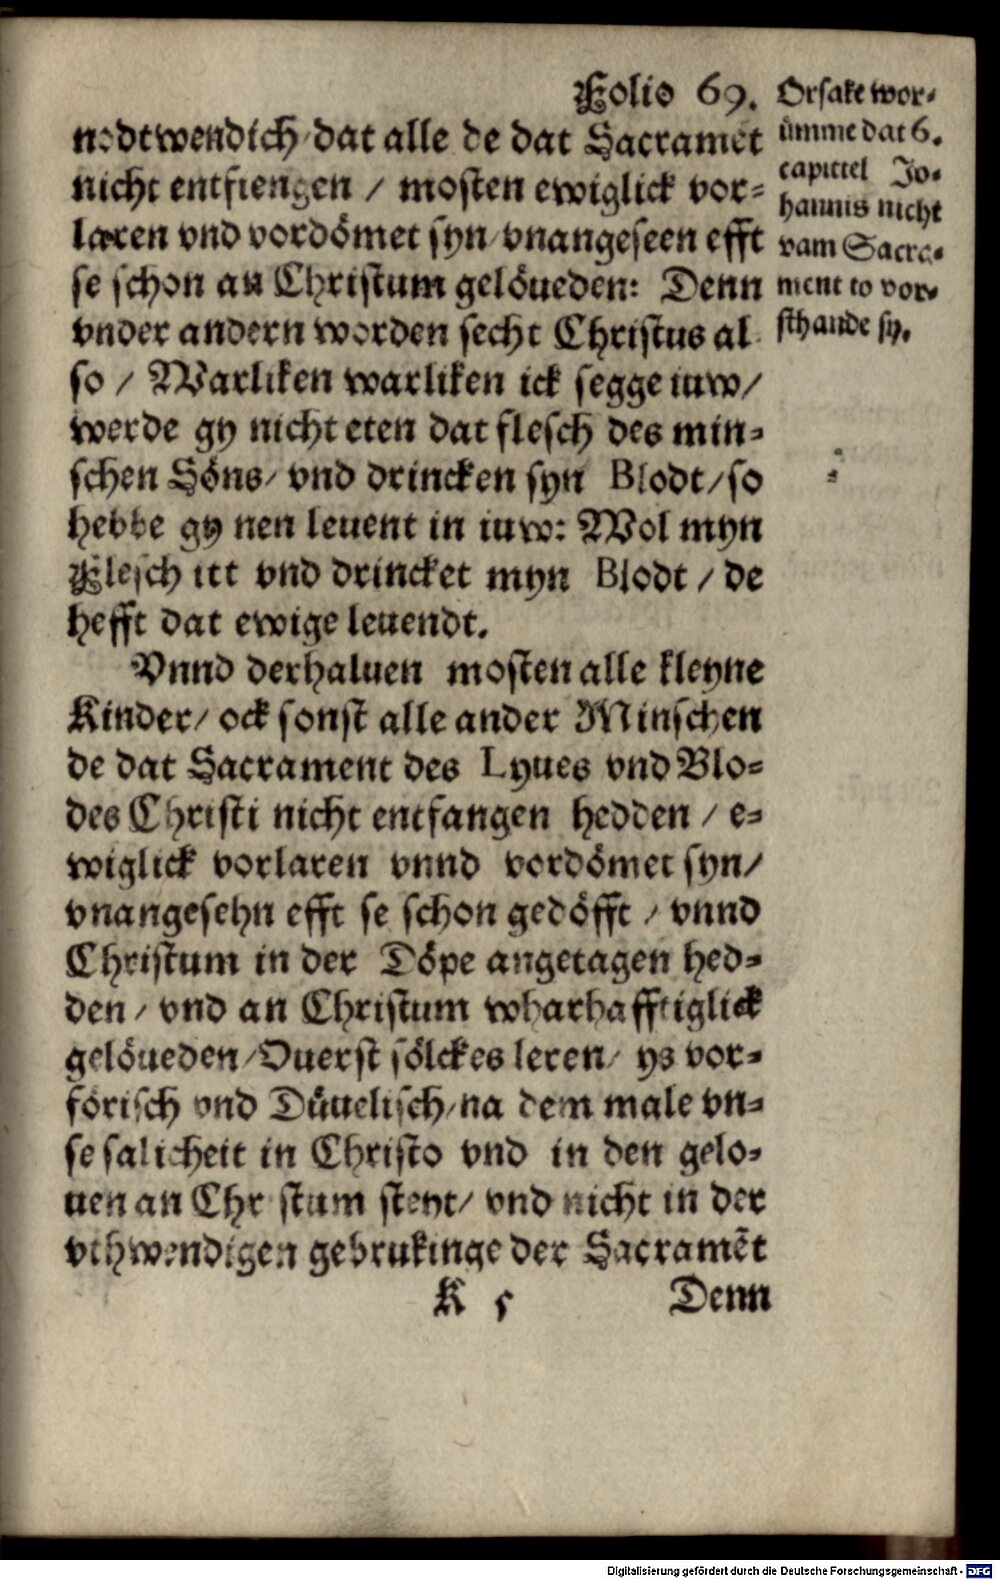 Folio 69.
nodtwendich/dat alle de dat Sacramēt
nicht entfiengen / mosten ewiglick vor-
laren vnd vordömet syn/vnangeseen efft
se schon an Christum gelöueden: Denn
vnder andern worden secht Christus al
so / Warliken warliken ick segge iuw/
werde gy nicht eten dat flesch des min-
schen Söns/ vnd drincken syn Blodt/so
hebbe gy nen leuent in iuw: Wol myn
Flesch itt vnd drincket myn Blodt / de
hefft dat ewige leuendt.
Vnnd derhaluen mosten alle kleyne
Kinder/ ock sonst alle ander Minschen
de dat Sacrament des Lyues vnd Blo-
des Christi nicht entfangen hedden / e-
wiglick vorlaren vnnd vordömet syn/
vnangesehn efft se schon gedöfft / vnnd
Christum in der Döpe angetagen hed-
den / vnd an Christum wharhafftiglick
gelöueden/Ouerst sölckes leren/ ys vor-
förisch vnd Düuelisch/na dem male vn-
se salicheit in Christo vnd in den gelo-
uen an Christum steyt/ vnd nicht in der
vthwendigen gebrukinge der Sacramēt
K 5 Denn
Orsake wor-
ümme dat 6.
capittel Jo-
hannis nicht
vam Sacra-
ment to vor-
sthande sy.
Digitalisierung gefördert durch die Deutsche Forschungsgemeinschaft - DFG